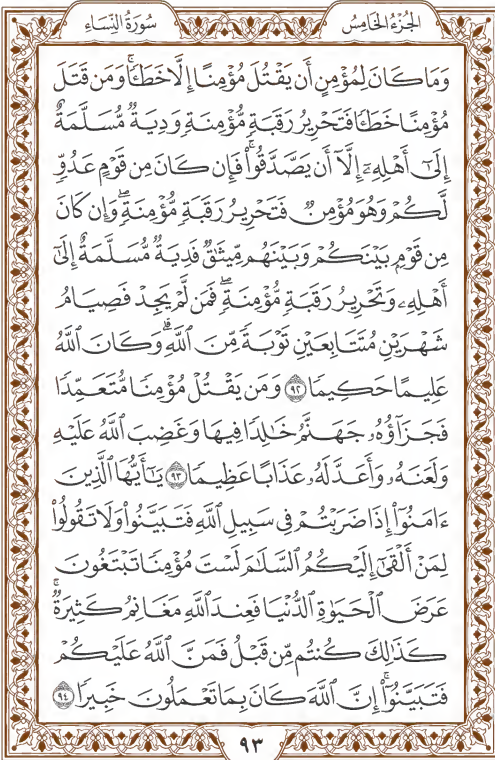 سُورَةُ النِّسَاءِ
الجُزْءُ الخَامِسُ
وَمَا كَانَ لِمُؤْمِنٍ أَن يَقْتُلَ مُؤْمِنًا إِلَّا خَطَـًٔا ۚ وَمَن قَتَلَ
مُؤْمِنًا خَطَـًٔا فَتَحْرِيرُ رَقَبَةٍ مُّؤْمِنَةٍ وَدِيَةٌ مُّسَلَّمَةٌ
إِلَىٰٓ أَهْلِهِۦٓ إِلَّآ أَن يَصَّدَّقُوا۟ ۚ فَإِن كَانَ مِن قَوْمٍ عَدُوٍّ
لَّكُمْ وَهُوَ مُؤْمِنٌ فَتَحْرِيرُ رَقَبَةٍ مُّؤْمِنَةٍ ۖ وَإِن كَانَ
مِن قَوْمٍۭ بَيْنَكُمْ وَبَيْنَهُم مِّيثَـٰقٌ فَدِيَةٌ مُّسَلَّمَةٌ إِلَىٰٓ
أَهْلِهِۦ وَتَحْرِيرُ رَقَبَةٍ مُّؤْمِنَةٍ ۖ فَمَن لَّمْ يَجِدْ فَصِيَامُ
شَهْرَيْنِ مُتَتَابِعَيْنِ تَوْبَةً مِّنَ ٱللَّهِ ۗ وَكَانَ ٱللَّهُ
عَلِيمًا حَكِيمًا ٩٢ وَمَن يَقْتُلْ مُؤْمِنًا مُّتَعَمِّدًا
فَجَزَآؤُهُۥ جَهَنَّمُ خَـٰلِدًا فِيهَا وَغَضِبَ ٱللَّهُ عَلَيْهِ
وَلَعَنَهُۥ وَأَعَدَّ لَهُۥ عَذَابًا عَظِيمًا ٩٣ يَـٰٓأَيُّهَا ٱلَّذِينَ
ءَامَنُوٓا۟ إِذَا ضَرَبْتُمْ فِى سَبِيلِ ٱللَّهِ فَتَبَيَّنُوا۟ وَلَا تَقُولُوا۟
لِمَنْ أَلْقَىٰٓ إِلَيْكُمُ ٱلسَّلَـٰمَ لَسْتَ مُؤْمِنًا تَبْتَغُونَ
عَرَضَ ٱلْحَيَوٰةِ ٱلدُّنْيَا فَعِندَ ٱللَّهِ مَغَانِمُ كَثِيرَةٌ ۚ
كَذَٰلِكَ كُنتُم مِّن قَبْلُ فَمَنَّ ٱللَّهُ عَلَيْكُمْ
فَتَبَيَّنُوٓا۟ ۚ إِنَّ ٱللَّهَ كَانَ بِمَا تَعْمَلُونَ خَبِيرًا ٩٤
٩٣